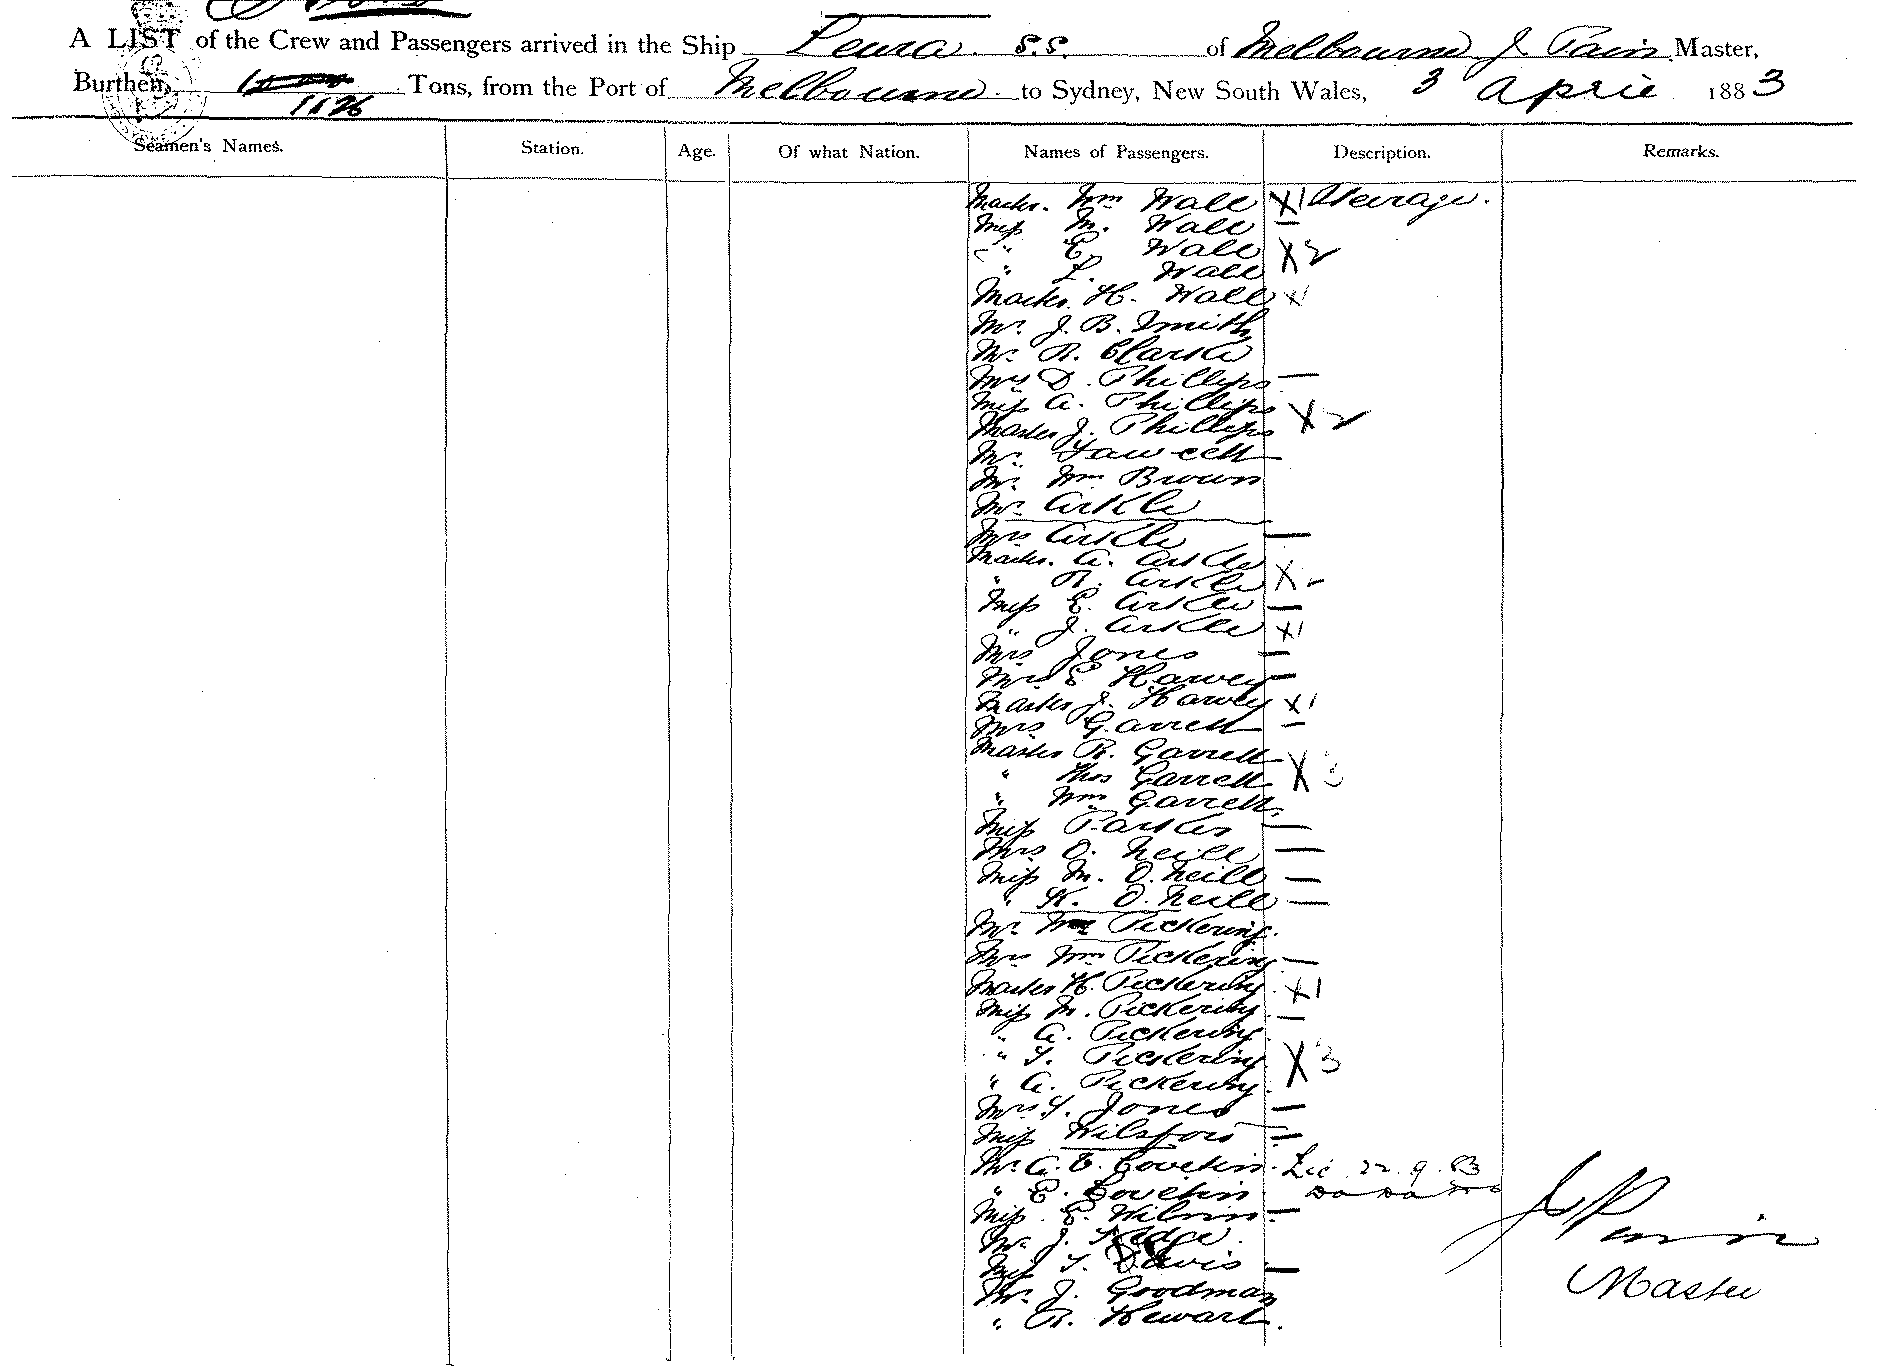 A LIST of the Crew and Passengers arrived in the Ship Leura S.S. of Melbourne J Pain Master,
Burthen, 1126 Tons, from the Port of Melbourne to Sydney, New South Wales, 3 April 1883
Seamen's Names. Station. Age. Of what Nation. Names of Passengers. Description. Remarks.
Master. Wm Wall X1 Steerage.
Miss M. Wall —
" E. Wall X2
" L. Wall
Master H. Wall X1
Mr. J. B. Smith
Mr. R. Clarke
Mrs D. Phillips —
Miss A. Phillips X2
Master J. Phillips
Mr. Fawcett
Mr. Wm Brown
Mr. Arkle
Mrs Arkle —
Master. A. Arkle
" R. Arkle X
Miss E. Arkle —
" J. Arkle X1
Mrs Jones —
Mrs E Harvey —
Master J. Harvey X1
Mrs Garrett —
Master R. Garrett
" Thos Garrett X3
" Wm Garrett
Miss Parker —
Mrs O. Neill —
Miss M. O. Neill —
" K. O. Neill —
Mr. Wm Pickering.
Mrs Wm Pickering —
Master H. Pickering X1
Miss M. Pickering —
" A. Pickering
" T. Pickering X3
" A. Pickering
Mrs T. Jones —
Miss —
Mr. A. E.
" E.
Miss E. —
Mr. J.
Miss T. Davis —
Mr. J. Goodman
" R. Hewart.
J Pain
Master